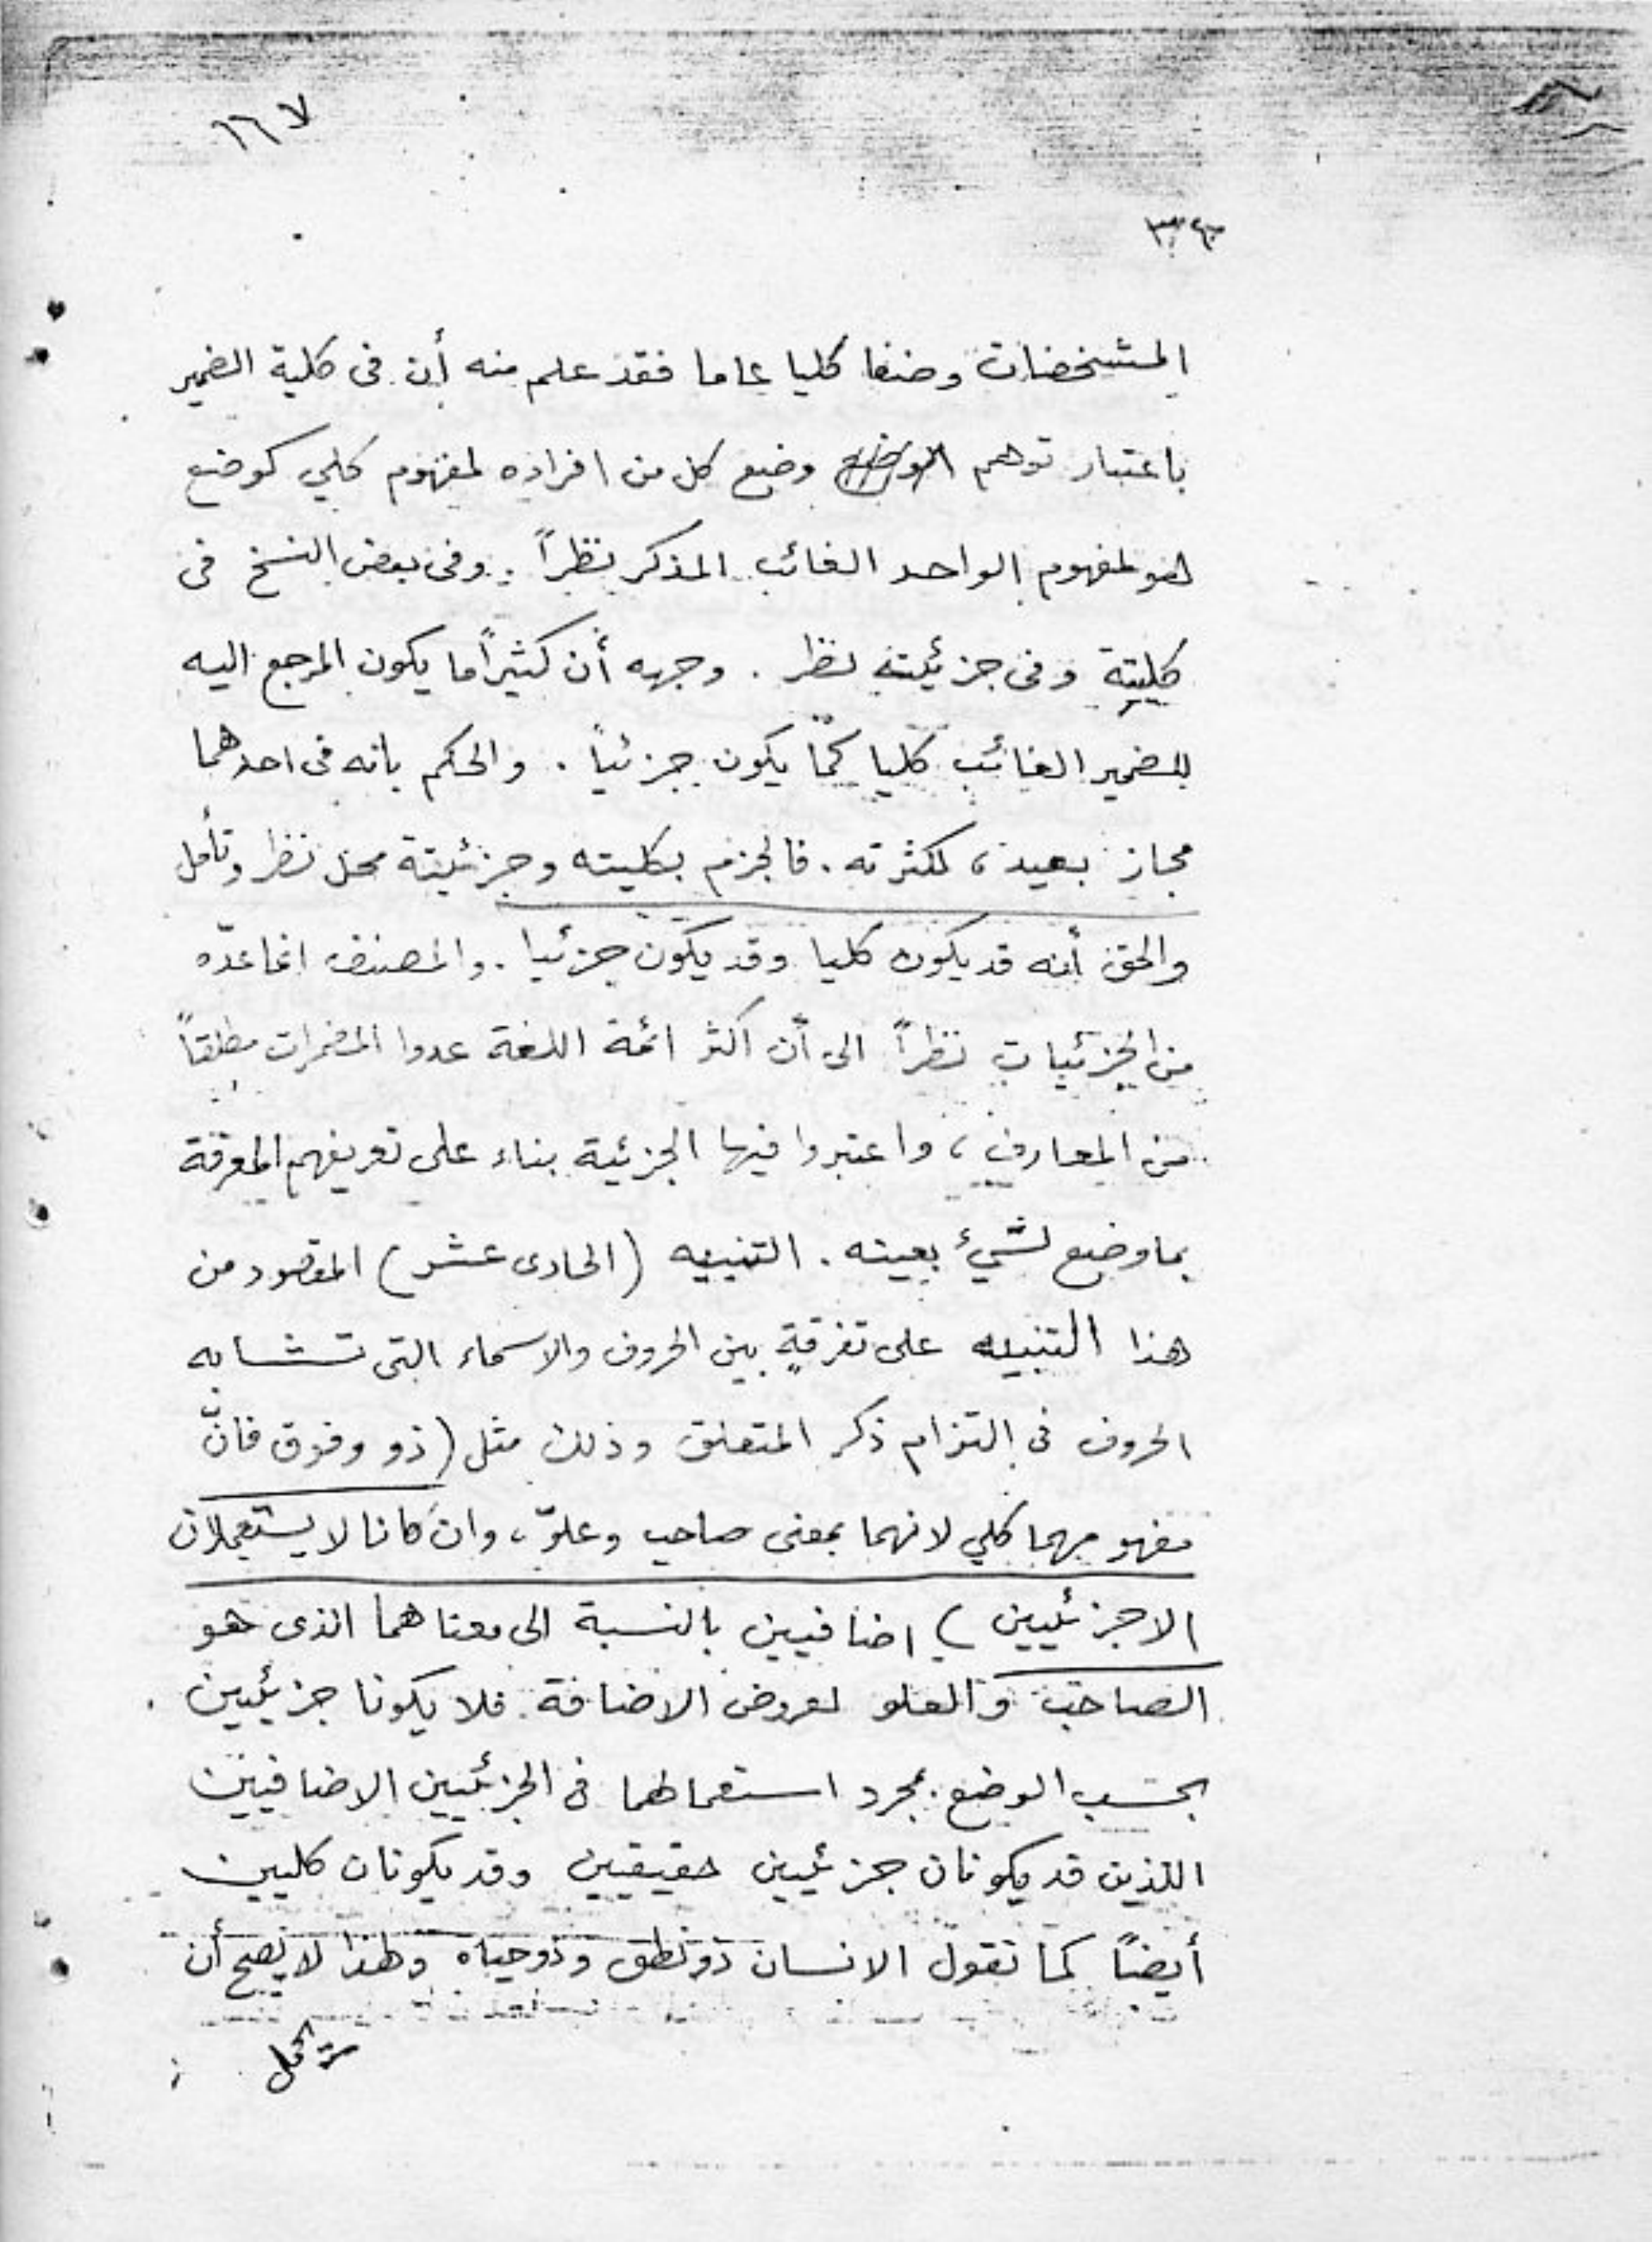 المشخضات وضعا كليا عاما فقد علم منه أن فى كلية الضمير
باعتبار توهم وضع كل من افراده لمفهوم كلي كوضع
هو لمفهوم الواحد الغائب المذكر نظراً . وفى بعض النسخ فى
كليته وفى جزئيته نظر . وجهه أن كثيراً ما يكون المرجع اليه
للضمير الغائب كليا كما يكون جزئياً . والحكم بانه فى احدهما
مجاز بعيد ، لكثرته . فالجزم بكليته وجزئيتة محل نظر وتأمل
والحق أنه قد يكون كليا وقد يكون جزئيا . والمصنف انما عدّه
من الجزئيات نظراً الى أن اكثر ائمة اللغة عدوا المضمرات مطلقاً
من المعارف ، واعتبروا فيها الجزئية بناء على تعريفهم المعرفة
بما وضع لشيء بعينه . التنبيه (الحادى عشر) المقصود من
هذا التنبيه على تفرقةٍ بين الحروف والاسماء التى تشابه
الحروف فى التزام ذكر المتعلق وذلك مثل (ذو وفوق فانّ
مفهو مهما كلي لانهما بمعنى صاحب وعلوّ ، وان كانا لا يستعملان
الا جزئيين) اضافيين بالنسبة الى معناهما الذى هو
الصاحب والعلو لعروض الاضافة فلا يكونا جزئيين
بحسب الوضع بمجرد استعمالهما فى الجزئيين الاضافيين
اللذين قد يكونان جزئيين حقيقيين وقد يكونان كليين
أيضاً كما تقول الانسان ذو نطق وذو حياه ولهذا لا يصح أن